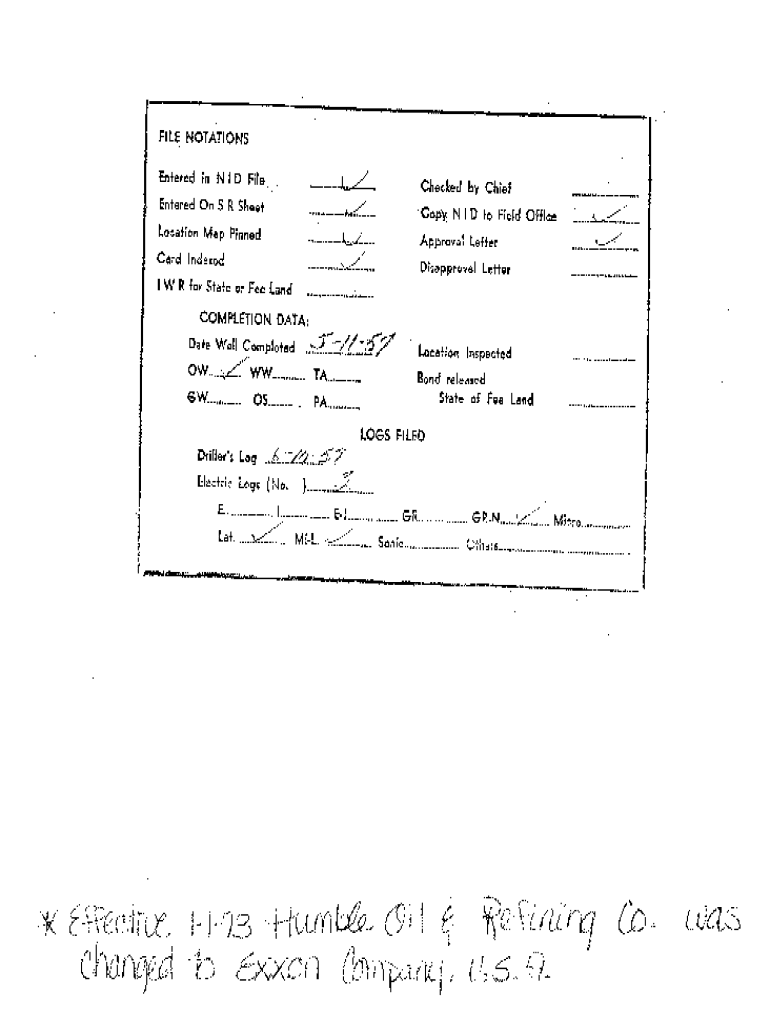 FILE NOTATIONS
Entered in N I D File ✓
Checked by Chief
Entered On S R Sheet ✓
Copy N I D to Field Office ✓
Location Map Pinned ✓
Approval Letter ✓
Card Indexed ✓
Disapproval Letter
I W R for State or Fee Land
COMPLETION DATA:
Date Well Completed 5-11-57
Location Inspected
OW ✓ WW TA
Bond released
GW OS PA
State of Fee Land
LOGS FILED
Driller's Log 6-10-57
Electric Logs (No. ) 3
E I E-I GR GR-N ✓ Micro
Lat. ✓ Mi-L ✓ Sonic Others
* Effective 1-1-73 Humble Oil & Refining Co. was
changed to Exxon Company, U.S.A.